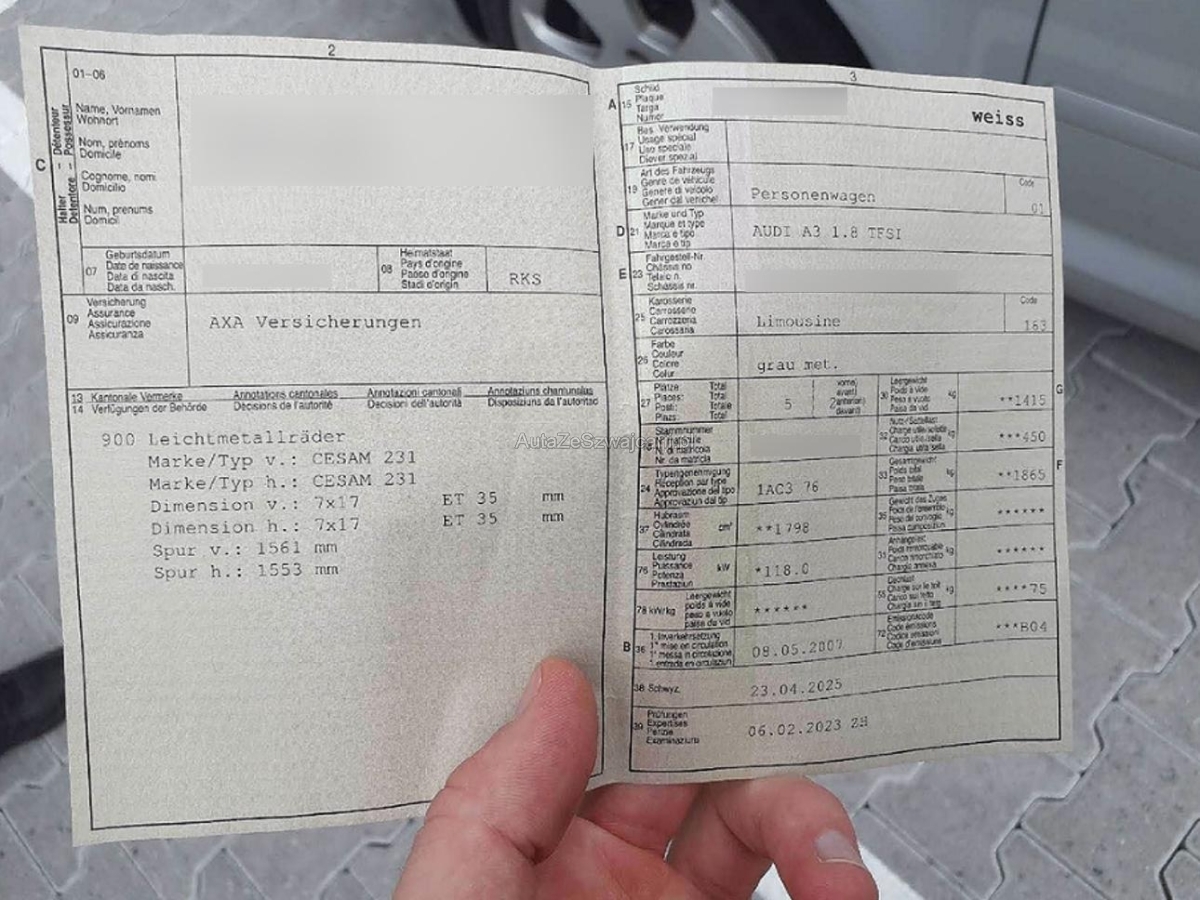 2
01-06
Name, Vornamen
Wohnort
Nom, prénoms
Domicile
Cognome, nomi
Domicilio
Num, prenums
Domicil
C
Halter – Détenteur
Detentore – Possessur
07
Geburtsdatum
Date de naissance
Data di nascita
Data da nasch.
08
Heimatstaat
Pays d'origine
Paese d'origine
Stadi d'origin
RKS
09
Versicherung
Assurance
Assicurazione
Assicuranza
AXA Versicherungen
13 Kantonale Vermerke Annotations cantonales Annotazioni cantonali Annotaziuns chantunalas
14 Verfügungen der Behörde Décisions de l'autorité Decisioni dell'autorità Disposiziuns da l'autoritad
900 Leichtmetallräder
Marke/Typ v.: CESAM 231
Marke/Typ h.: CESAM 231
Dimension v.: 7x17 ET 35 mm
Dimension h.: 7x17 ET 35 mm
Spur v.: 1561 mm
Spur h.: 1553 mm
3
A 15
Schild
Plaque
Targa
Numer
weiss
17
Bes. Verwendung
Usage spécial
Uso speciale
Diever spezial
19
Art des Fahrzeugs
Genre de véhicule
Genere di veicolo
Gener dal vehichel
Personenwagen
Code
01
D 21
Marke und Typ
Marque et type
Marca e tipo
Marca e tip
AUDI A3 1.8 TFSI
E 23
Fahrgestell-Nr.
Châssis no
Telaio n.
Schassis nr.
25
Karosserie
Carrosserie
Carrozzeria
Carossaria
Limousine
Code
163
26
Farbe
Couleur
Colore
Colur
grau met.
27
Plätze: Total
Places: Total
Posti: Totale
Plazs: Total
5
vorne/
avant/
anteriori/
davant/
30
Leergewicht
Poids à vide
Peso a vuoto
Paisa da vid
kg
**1415
G
Stammnummer
N. di matricola
Nr. da matricla
32
kg
***450
24
Typengenehmigung
Réception par type
Approvazione del tipo
Approvaziun dal tip
1AC3 76
33
Gesamtgewicht
Poids total
Peso totale
Paisa totala
kg
**1865
F
37
Hubraum
Cylindrée
Cilindrata
Cilindrada
cm³
**1798
35
Gewicht des Zuges
kg
******
76
Leistung
Puissance
Potenza
Prestaziun
kW
*118.0
31
Anhängelast
kg
******
78 kW/kg
Leergewicht
poids à vide
peso a vuoto
paisa da vid
******
55
Dachlast
kg
****75
B 36
1. Inverkehrsetzung
1re mise en circulation
1a messa in circolazione
1. entrada en circulaziun
08.05.2007
72
Emissionscode
Code émissions
Codice emissioni
Code d'emissiuns
***B04
38 Schwyz,
23.04.2025
39
Prüfungen
Expertises
Perizie
Examinaziuns
06.02.2023 ZH